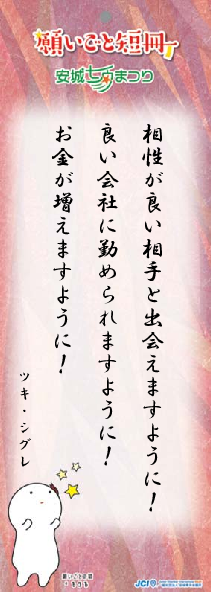 願いごと短冊
安城七夕まつり
相性が良い相手と出会えますように！
良い会社に勤められますように！
お金が増えますように！
ツキ・シグレ
願いごと短冊
JCI